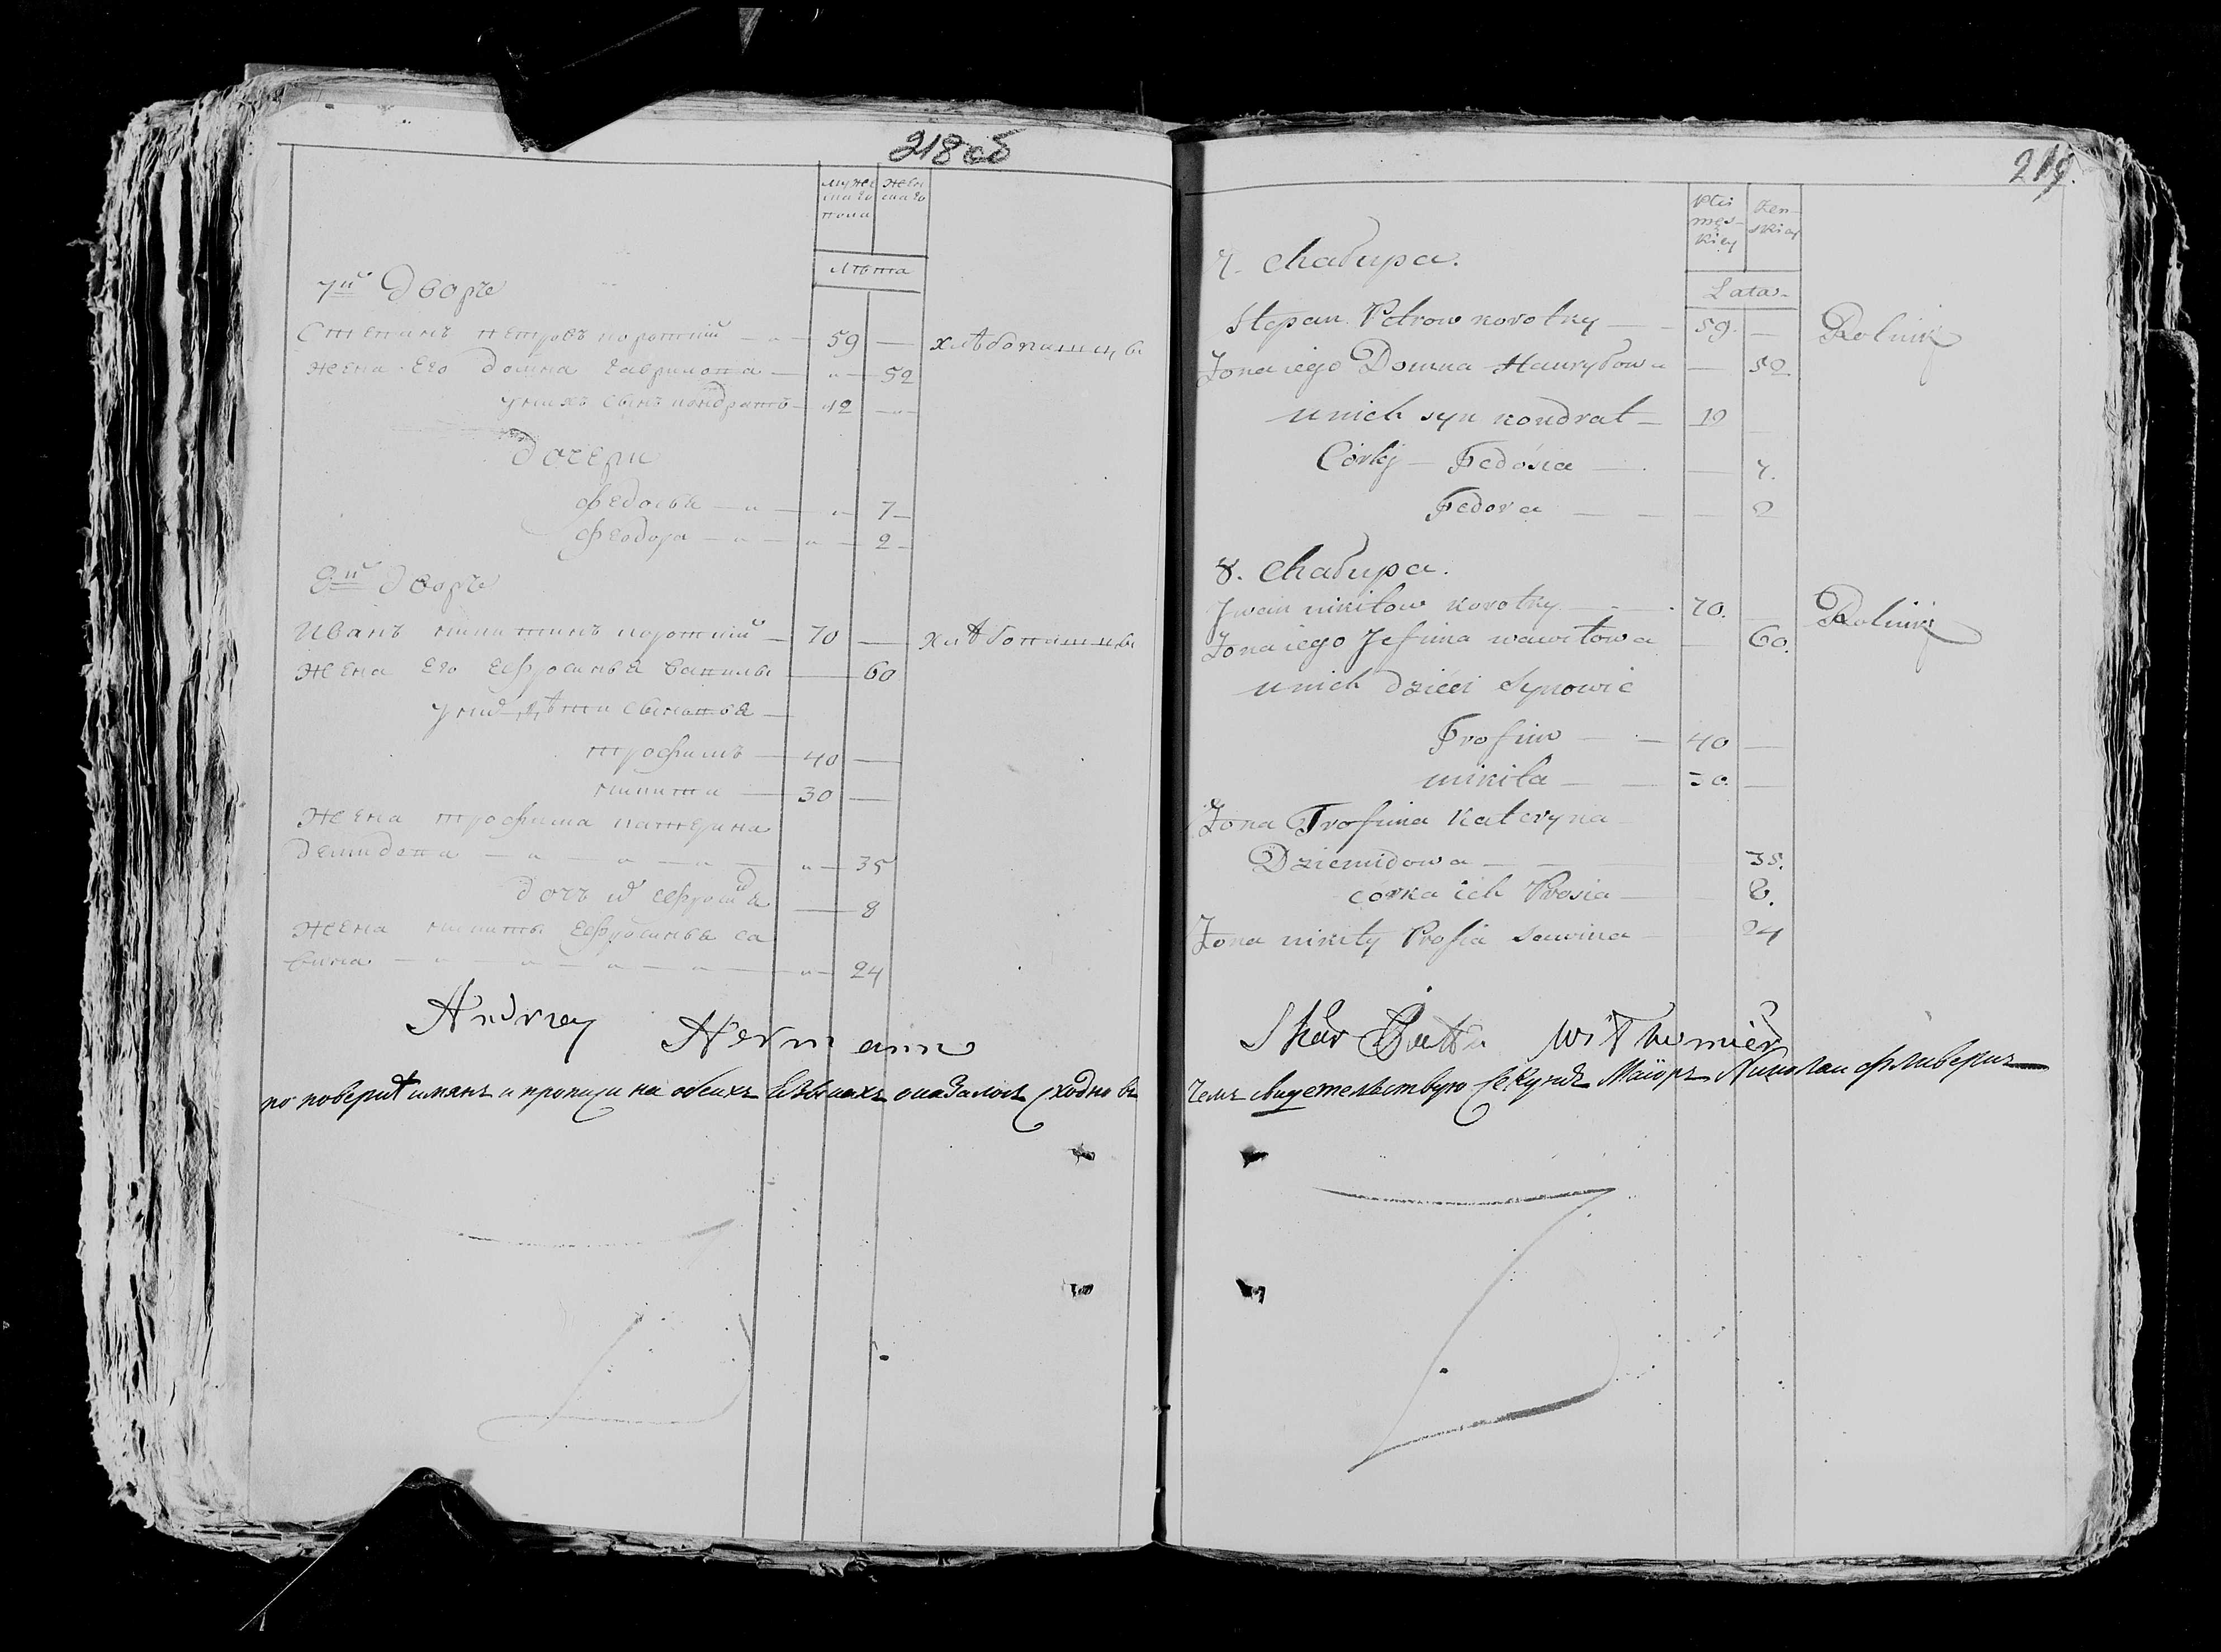 218 об
мужескаго пола
женскаго
Лѣта
7й Дворъ
Степанъ петровъ короткий 59 — хлѣбопашецъ
жена Его домна гаврилова — 52
у нихъ сынъ кондратъ 12 —
дочери
федосья — 7
феодора — 2
8й дворъ
Иванъ никитинъ короткий 70 — хлѣбопашецъ
жена Его Ефросинья вавилы — 60
у них дѣти сыновья
трофимъ — 40 —
никита — 30 —
Жена трофима катерина
Демидова — 35
дочь их ефросиья — 8
жена никиты Ефросинья са
вина — 24
Andrzey Hermann
по поверке имянъ и прописи на обеихъ Языкахъ оказалось сходно въ
219.
Płci męskiey
żenskiey
Lata
7. Chałupa.
Stepan Petrow korotky — 59. — Rolnik
Żona iego Domna Hawryłowa — 52
u nich syn kondrat — 12
Córki — Fedósia — 7.
Fedora — 2
8. Chałupa.
Jwan nikitow korotky — 70. Rolnik
Żona iego Jefima wawiłowa — 60.
u nich dzieci Synowie
Trofim — 40 —
nikita — 30. —
Żona Trofima Kateryna
Dziemidowa — 35.
corka ich Prosia — 8.
Żona nikity Prosia sawina — 24
чемъ свидетельствую Секундъ Маіоръ Николай